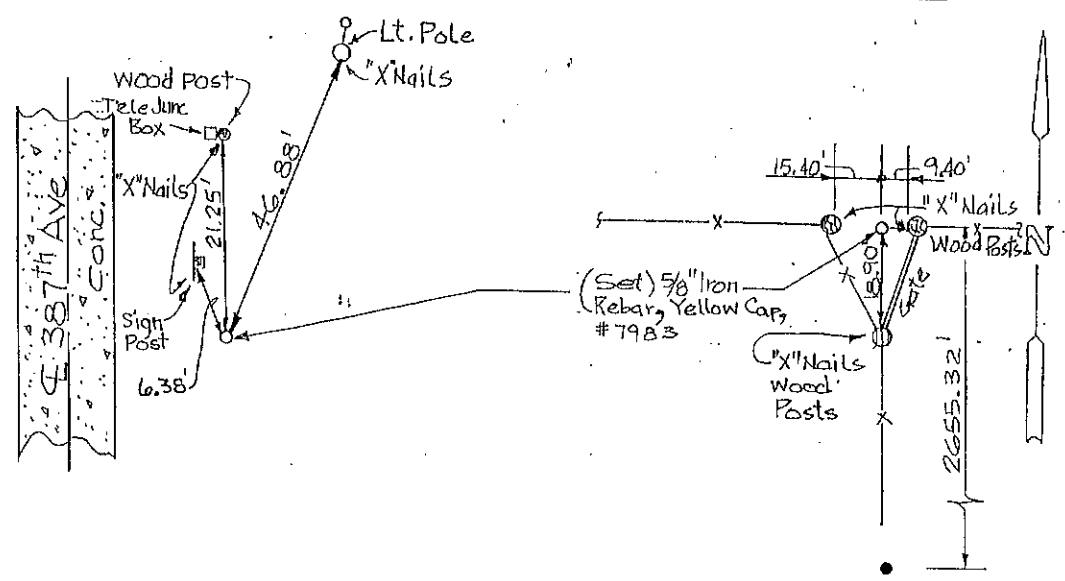 Lt. Pole
"X" Nails
Wood Post
Tele Junc
Box
"X" Nails
21.25'
46.88'
℄ 387th Ave
Conc.
Sign
Post
6.38'
15.40'
9.40'
"X" Nails
Wood Posts
N
(Set) 5/8" Iron
Rebar, Yellow Cap,
#7983
18.90'
Gate
"X" Nails
Wood
Posts
2655.32'